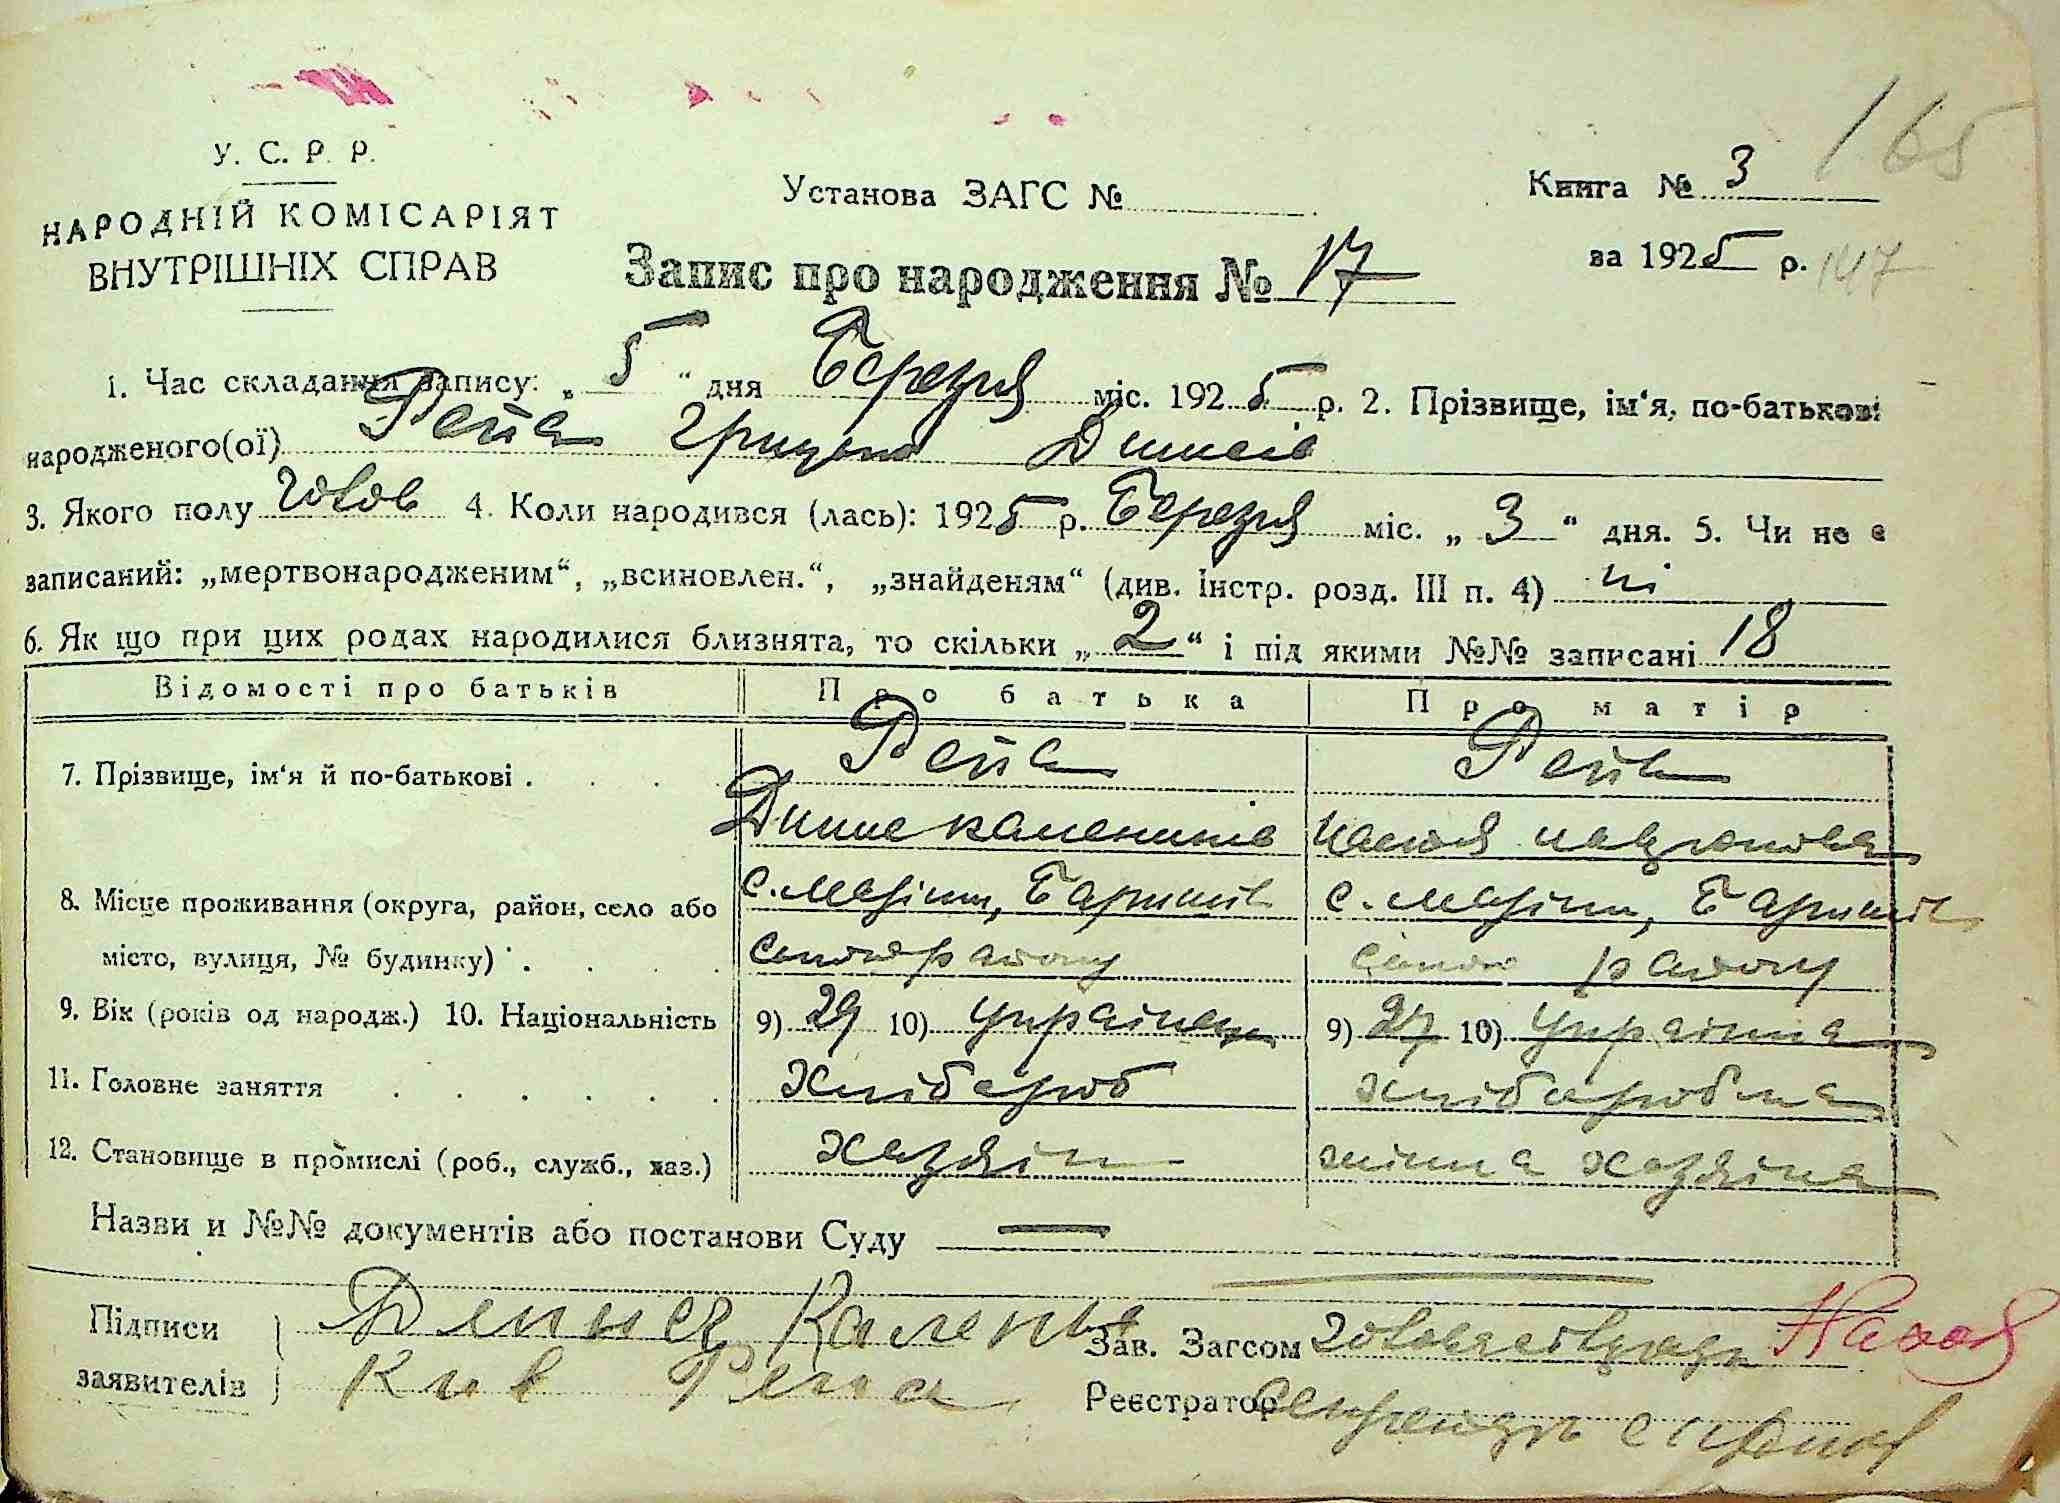 165
У. С. Р. Р.
НАРОДНІЙ КОМІСАРІЯТ
ВНУТРІШНІХ СПРАВ
Установа ЗАГС №
Книга № 3
за 1925 р. 147
Запис про народження № 17
1. Час складання запису: „ 5 “ дня Березня міс. 1925 р. 2. Прізвище, ім‘я, по-батькові
народженого(ої) Репа Грицько
3. Якого полу чолов 4. Коли народився (лась): 1925 р. Березня міс. „ 3 “ дня. 5. Чи не є
записаний: „мертвонародженим“, „всиновлен.“, „знайденям“ (див. Інстр. розд. III п. 4) ні
6. Як що при цих родах народилися близнята, то скільки „ 2 “ і під якими №№ записані 18
Відомості про батьків Про батька Про матір
7. Прізвище, ім‘я й по-батькові . Репа Репа
8. Місце проживання (округа, район, село або с. Баришів с. Баришів
місто, вулиця, № будинку) . району району
9. Вік (років од народж.) 10. Національність 9) 29 10) Українець 9) 27 10) Українка
11. Головне заняття Хлібороб хліборобка
12. Становище в промислі (роб., служб., хаз.) хазяїн жінка хазяїна
Назви и №№ документів або постанови Суду —
Підписи
заявителів Репа
Зав. Загсом
Реєстратор Секретарь